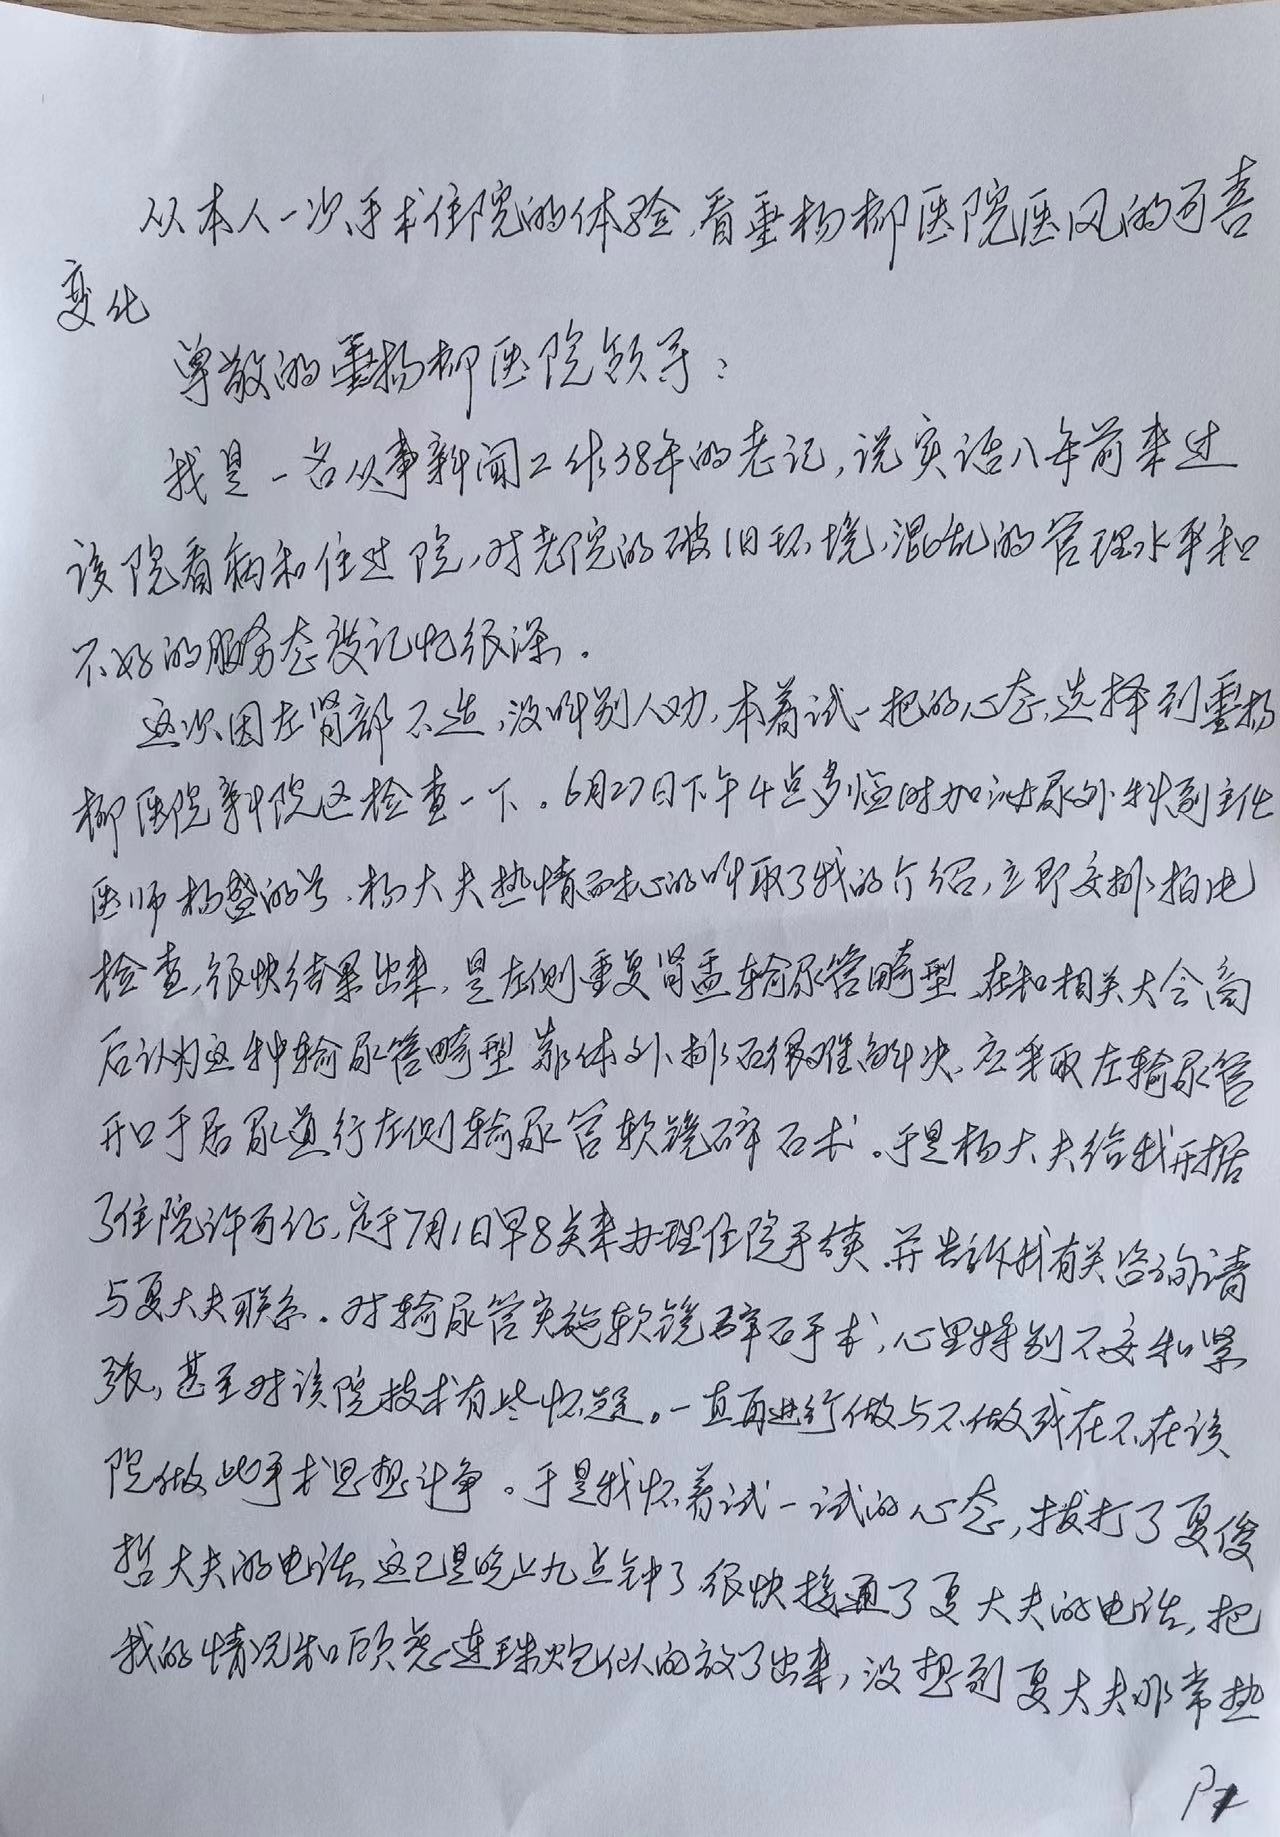 从本人一次手术住院的体验,看垂杨柳医院医风的可喜
变化
尊敬的垂杨柳医院领导:
我是一名从事新闻工作38年的老记,说实话八年前来过
该院看病和住过院,对老院的破旧环境,混乱的管理水平和
不好的服务态度记忆很深.
这次因左肾部不适,没听别人劝,本着试一把的心态,选择到垂杨
柳医院新院区检查一下.6月27日下午4点多临时加泌尿外科副主任
医师杨盤的号.杨大夫热情而热心的听取了我的介绍,立即安排拍片
检查,很快结果出来,是左侧重复肾盂输尿管畸型,在和相关大会商
后认为这种输尿管畸型靠体外排石很难解决,应采取左输尿管
开口于居尿道行左侧输尿管软镜碎石术.于是杨大夫给我开据
了住院许可证,定于7月1日早8点来办理住院手续.并告诉我有关咨询请
与夏大夫联系.对输尿管实施软镜碎石手术,心里特别不安和紧
张,甚至对该院技术有些怀疑。一直再进行做与不做或在不在该
院做此手术思想斗争.于是我怀着试一试的心态,拨打了夏俊
哲大夫的电话,这已是晚上九点钟了,很快接通了夏大夫的电话,把
我的情况和顾虑连珠炮似的放了出来,没想到夏大夫非常热